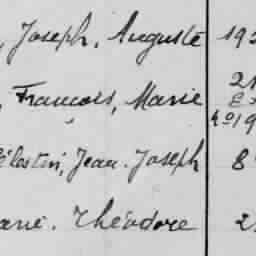 , Joseph, Auguste 192
, François, Marie 21
élestin, Jean-Joseph 8
Théodore 2